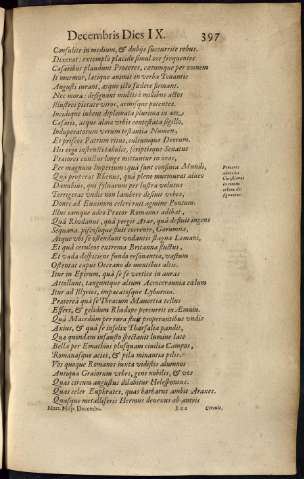 Decembris Dies IX. 397
Consulite in medium, & dubijs succurrite rebus.
Dixerat: extemplo placidè simul ore frequentes
Casaribus plaudunt Proceres, cœtumque per omnem
It murmur, latique animis in verba Tonantis
Augusti iurant, atque illo fœdere firmant.
Nec mora: designant multos è milibus actos
Illustres pietate viros, armisque potentes.
Incidunt iubent diplomata plurima in
Casaris, atque alam orbis contestata sigillo,
Induperatorum verum testantia Numen,
Et priscos Patrum ritus, cultumque Deorum.
His ergo instructi tabulis, scriptoque Senatus
Pratores cunctus longe mittuntur in oras,
Per magnum Imperium: quà sunt confinia Mundi,
Quà præterit Rhenus, quà pleno murmurat alueo
Danubius, qui sylvarum per lustra volutus
Terrigenas vndis non lambere desinit vrbes,
Donec ad Euxinum celereruit agmine Pontum.
Illuc cumque adeo Prætor Romanus adibat,
Quà Rhodanus, quà pergit Arar, quà defluit ingens
Sequana, piscosoque fluit torrente, Garumna,
Atque vbi se ostendunt vndantis stagna Lemani,
Et quà cæruleus extrema Britannia fluctus,
Et vada despiciens funda resonantia, vastum
Ostentat caput Oceano de montibus altis.
Itur in Epirum, quà se se vertice in auras
Attollunt, tanguntque altum Acroceraunia cælum
Itur ad Illyrios, impacatosque Lyburnos.
Prateritâ quà se Thracum Mauortia tellus
Effert, & gelidum Rhodope porrexit in Æmum.
Quà Macedum per rura fluit properantibus vndis
Axius, & quà se infelix Tharsalia pandit,
Quæ quondam infausto spectauit lumine lato
Bella per Emathios plusquam ciuilia Campos,
Romanasque acies, & pila minantia pilis.
Vos quoque Romanos iuxta vidistis alumnos
Antiqua Graiorum vrbes, gens nobilis, & vos
Quas circum angustus dilabitur Helespontus.
Quas celer Euphrates, quas barbarus ambit Araxes.
Quasque metalliferis Hermus deuexus ab antris
Mart. Hisp. Decemb. Circuit,